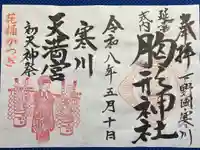 奉拝
下野國寒川
延喜式内
胸形神社
令和八年五月十日
寒川
天満宮
初天神祭
花桶かつぎ